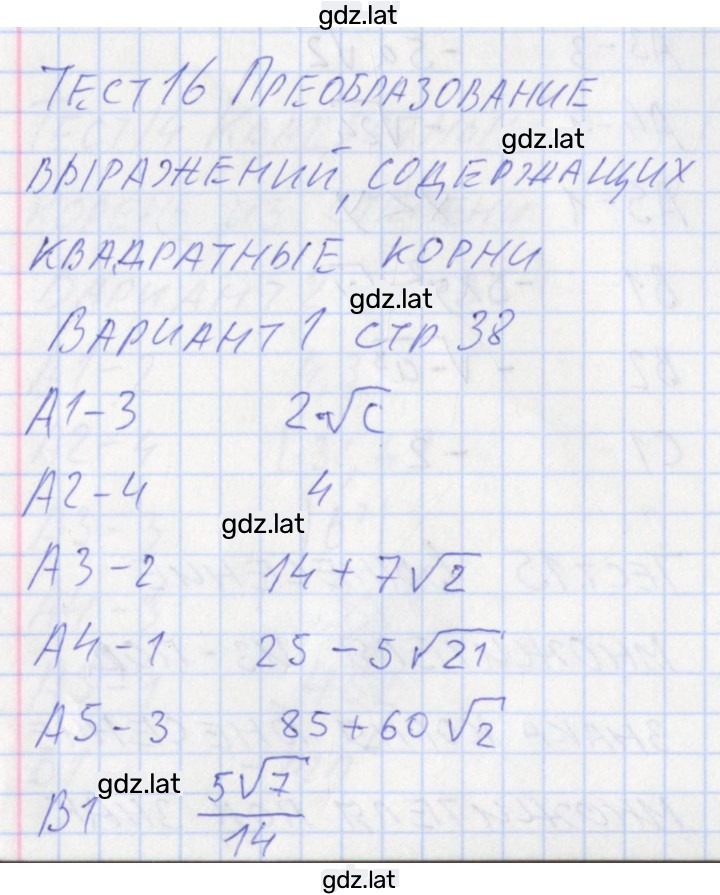 gdz.lat
ТЕСТ 16 ПРЕОБРАЗОВАНИЕ
gdz.lat
ВЫРАЖЕНИЙ, СОДЕРЖАЩИХ
КВАДРАТНЫЕ КОРНИ
gdz.lat
ВАРИАНТ 1 СТР 38
А1-3 2√c
А2-4 4
gdz.lat
А3-2 14+7√2
А4-1 25-5√21
А5-3 85+60√2
gdz.lat
В1 5√7/14
gdz.lat